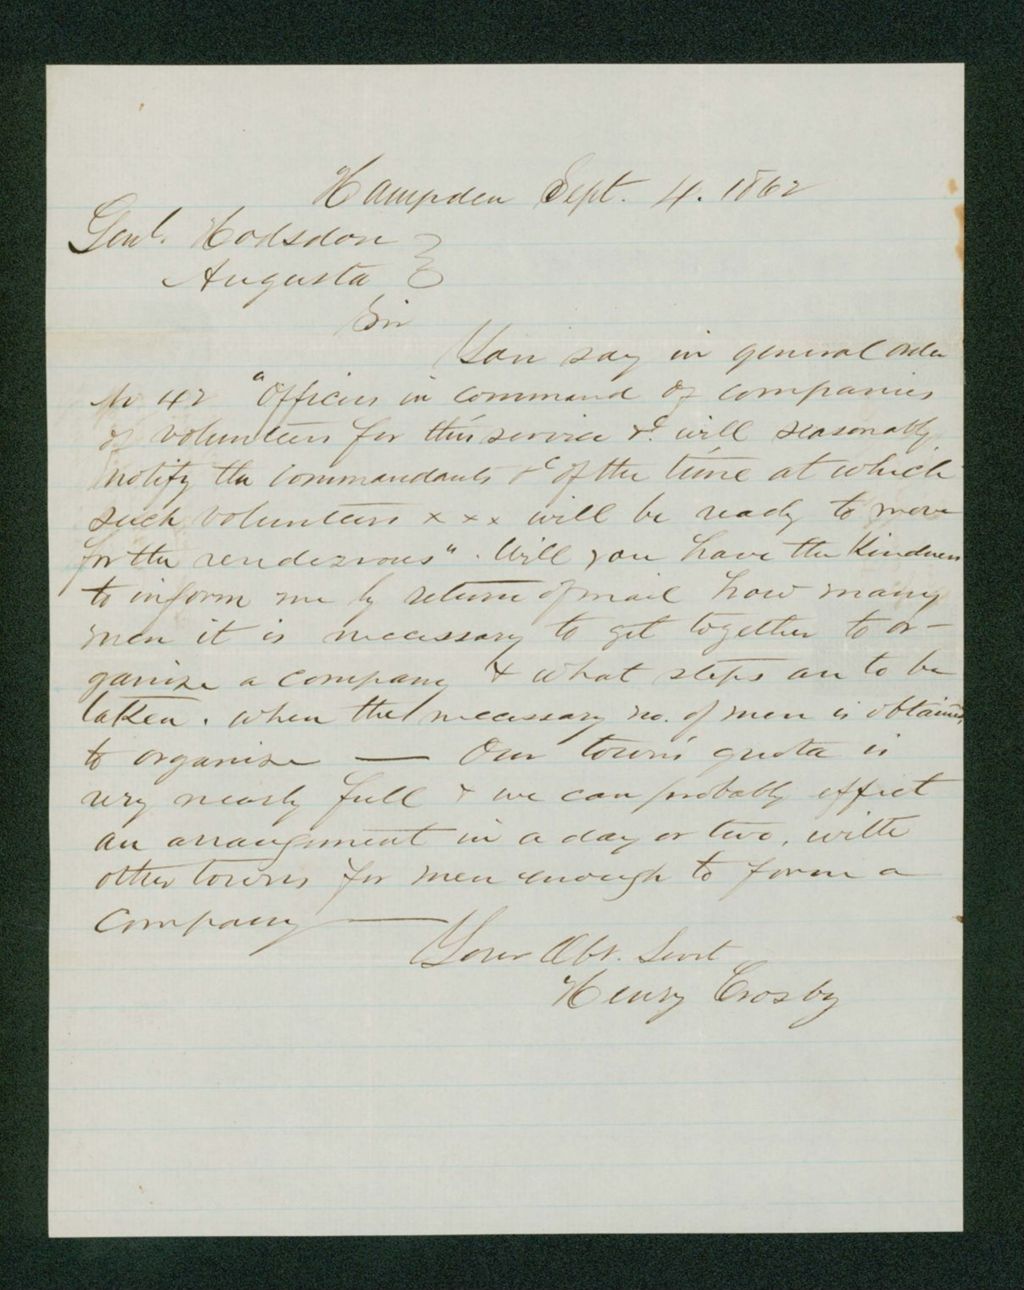 Hampden Sept. 4. 1862
Genl. Hodsdon
Augusta
Sir
You say in general order
No 42 "Officers in command of companies
of volunteers for this service &c. will seasonably
notify the commandants &c of the time at which
such volunteers x x x will be ready to move
for the rendezvous". Will you have the kindness
to inform me by return of mail how many
men it is necessary to get together to or-
ganize a company & what steps are to be
taken. when the necessary no. of men is obtained,
to organize — Our town's quota is
very nearly full & we can probably effect
an arrangement in a day or two, with
other towns for men enough to form a
company —
Your Obt. Servt
Henry Crosby